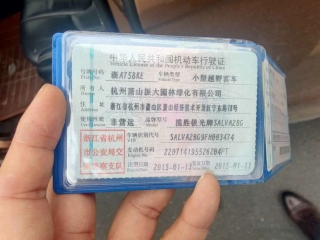 中华人民共和国机动车行驶证
Vehicle License of the People's Republic of China
号牌号码 浙A758KE 车辆类型 小型越野客车
所有人 杭州萧山振大园林绿化有限公司
住址 浙江省杭州市萧山区萧山经济技术开发区
使用性质 非营运 品牌型号 揽胜极光牌SALVA2BG
浙江省杭州市公安局交通警察支队
车辆识别代号 SALVA2BG9FH983474
发动机号码
注册日期 2015-01-13 发证日期 2015-01-13